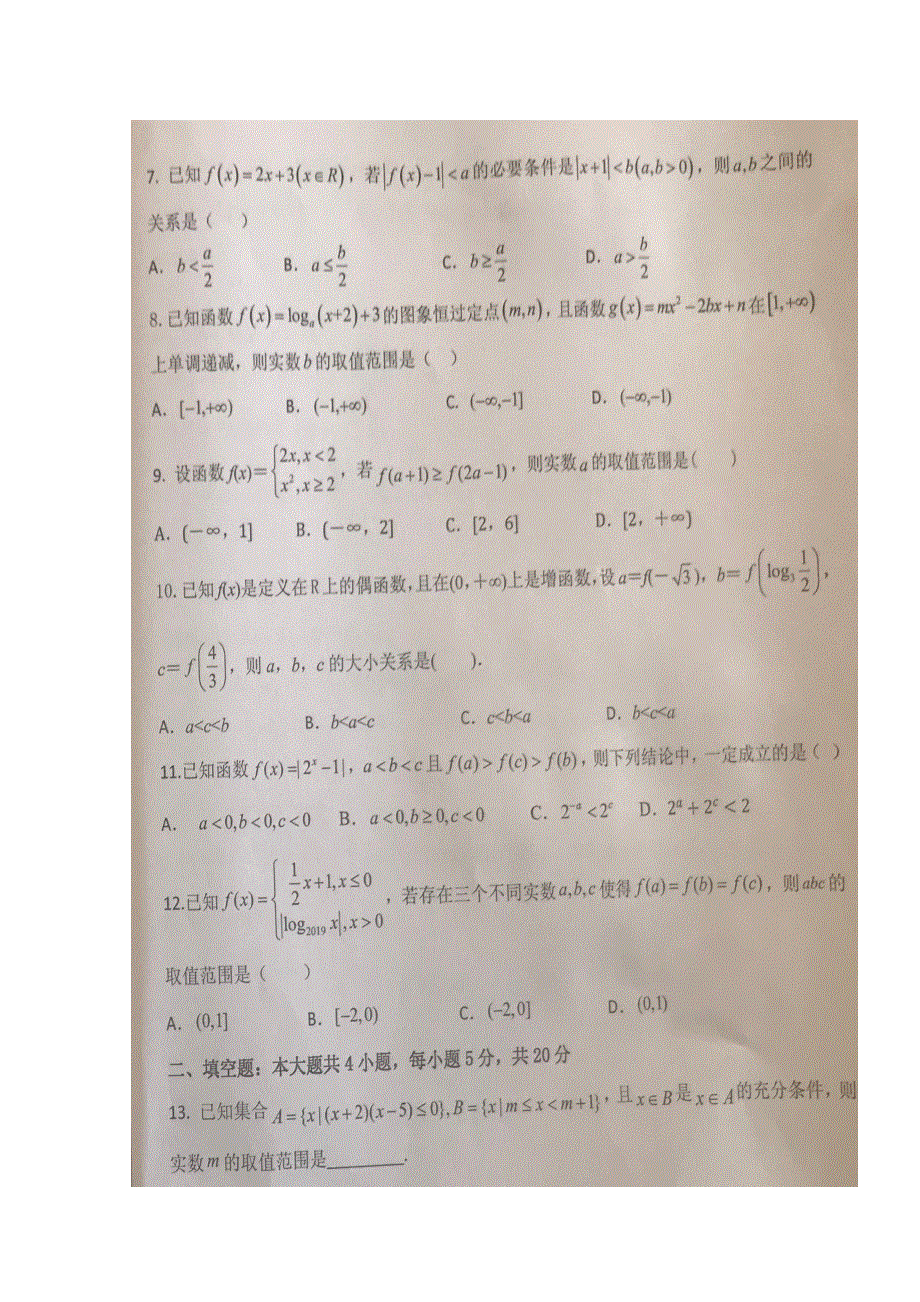 7. 已知 f(x)=2x+3(x∈R)，若|f(x)−1|<a的必要条件是|x+1|<b(a,b>0)，则a,b之间的
关系是（　）
A. b<a/2　B. a≤b/2　C. b≥a/2　D. a>b/2
8.已知函数f(x)=logₐ(x+2)+3的图象恒过定点(m,n)，且函数g(x)=mx²−2bx+n在[1,+∞)
上单调递减，则实数b的取值范围是（　）
A. [−1,+∞)　B. (−1,+∞)　C. (−∞,−1]　D. (−∞,−1)
9. 设函数f(x)={2x,x<2
x²,x≥2，若 f(a+1)≥f(2a−1)，则实数a的取值范围是(　)
A. (－∞，1]　B. (－∞，2]　C. [2，6]　D. [2，＋∞)
10.已知f(x)是定义在R上的偶函数，且在(0，＋∞)上是增函数，设a＝f(－√3)，b＝f(log₃ 1/2)，
c＝f(4/3)，则a，b，c的大小关系是(　).
A. a<c<b　B. b<a<c　C. c<b<a　D. b<c<a
11.已知函数f(x)=|2ˣ−1|，a<b<c且f(a)>f(c)>f(b)，则下列结论中，一定成立的是（　）
A. a<0,b<0,c<0　B. a<0,b≥0,c<0　C. 2⁻ᵃ<2ᶜ　D. 2ᵃ+2ᶜ<2
12.已知f(x)={1/2x+1,x≤0
|log₂₀₁₉ x|,x>0，若存在三个不同实数a,b,c使得f(a)=f(b)=f(c)，则abc的
取值范围是（　）
A. (0,1]　B. [−2,0)　C. (−2,0]　D. (0,1)
二、填空题：本大题共4小题，每小题5分，共20分
13. 已知集合A={x|(x+2)(x−5)≤0},B={x|m≤x<m+1}，且x∈B是x∈A的充分条件，则
实数m的取值范围是________.